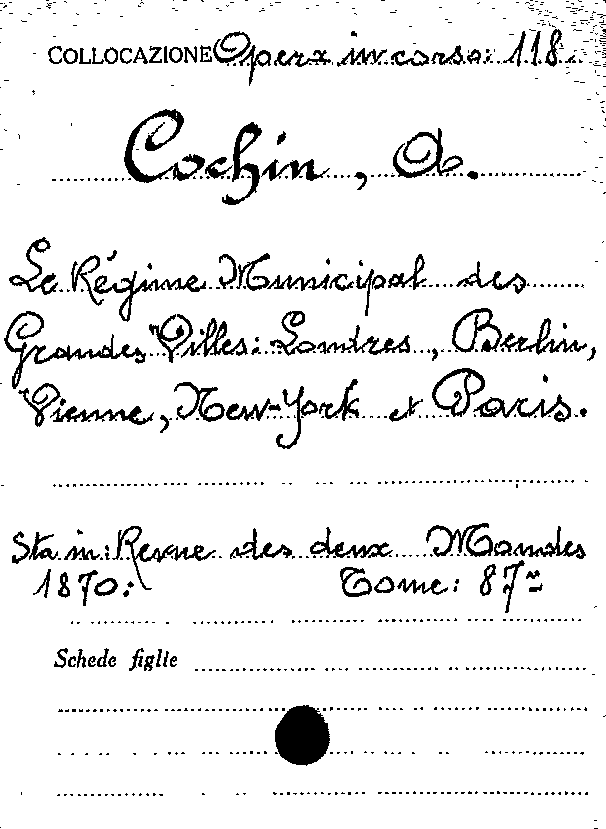 COLLOCAZIONE Opera in corso: 118.
Cochin, A.
Le Régime Municipal des
Grandes Villes: Londres, Berlin,
Vienne, New-York et Paris.
Sta in: Revue des deux Mondes
1870: Tome: 87ᵐ
Schede figlie